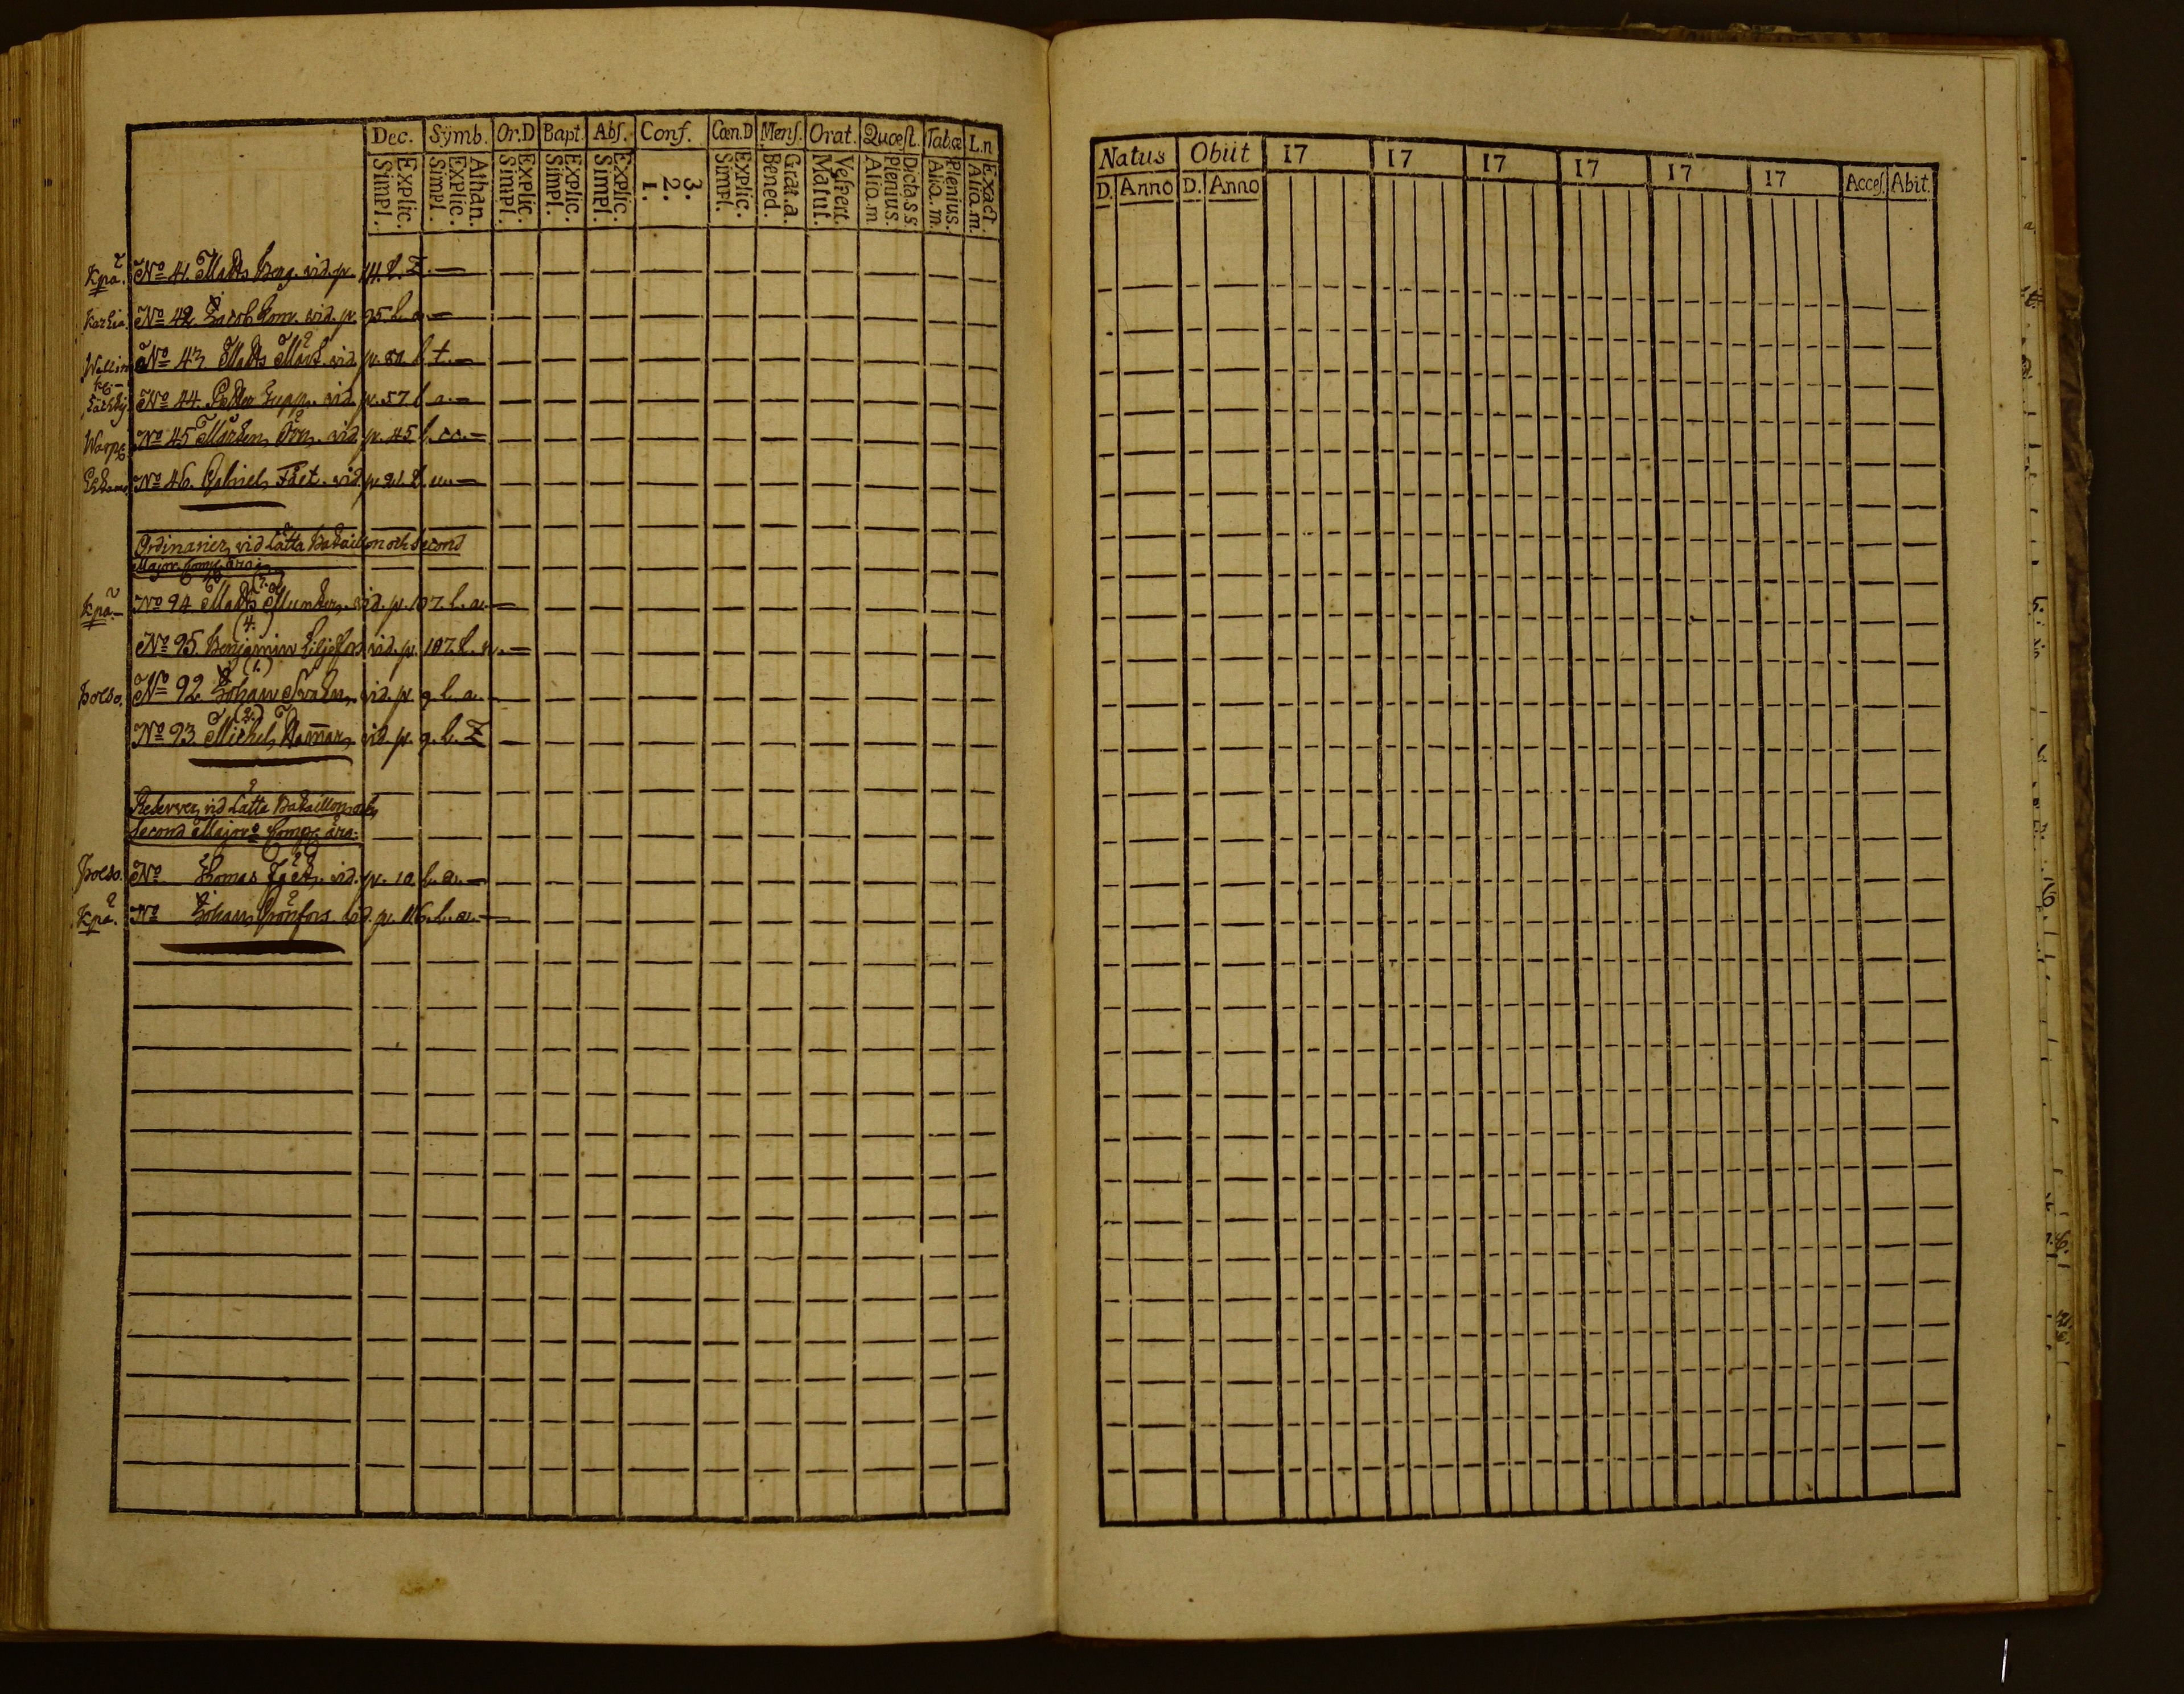 Dec. Symb. Or.D Bapt. Abſ. Conf. Cœn.D Menſ. Orat. Quœſt. Tab.œ L.n
Explic. Simpl. Athan. Explic. Simpl. Explic. Simpl. Explic. Simpl. Explic. Simpl. 3. 2. 1. Explic. Simpl. Grat.a. Bened. Veſpert. Matut. Dicta.s.s. Plenius. Aliq.m Plenius. Aliq.m. Exact. Aliq.m.
Kpä. No 41. Matts Berg. vid. p. 14. l. Z.
No 42. Jacob vid. p. 95. l. a.
No 43. Matts vid. p. 80. l. t.
No 44. Petter vid. p. 57 l a.
No 45 Mårten vid. p. 45 l.
No 46. Gabriel vid. p. 21. l. u.
Ordinarier vid Lätta Bataillon och Second
Major Comp. äro:
(3.)
Kpä. No 94 Matts Munter. vid. p. 107. l. a.
(4.)
No 95. Benjamin Liljefors vid. p. 107. l. n.
(1.)
No 92. Johan vid. p. 9. l. a.
(2.)
No 93. Michel Hamar, vid. p. 9. l. Z
Reserver vid Lätta Bataillon och
Second Majors Comp. äro:
No Thomas vid. p. 10 l. a.
Kpä. No Johan vid. p. 116. l. a.
Natus Obiit 17 17 17 17 17 17 Acceſ. Abit.
D. Anno D. Anno